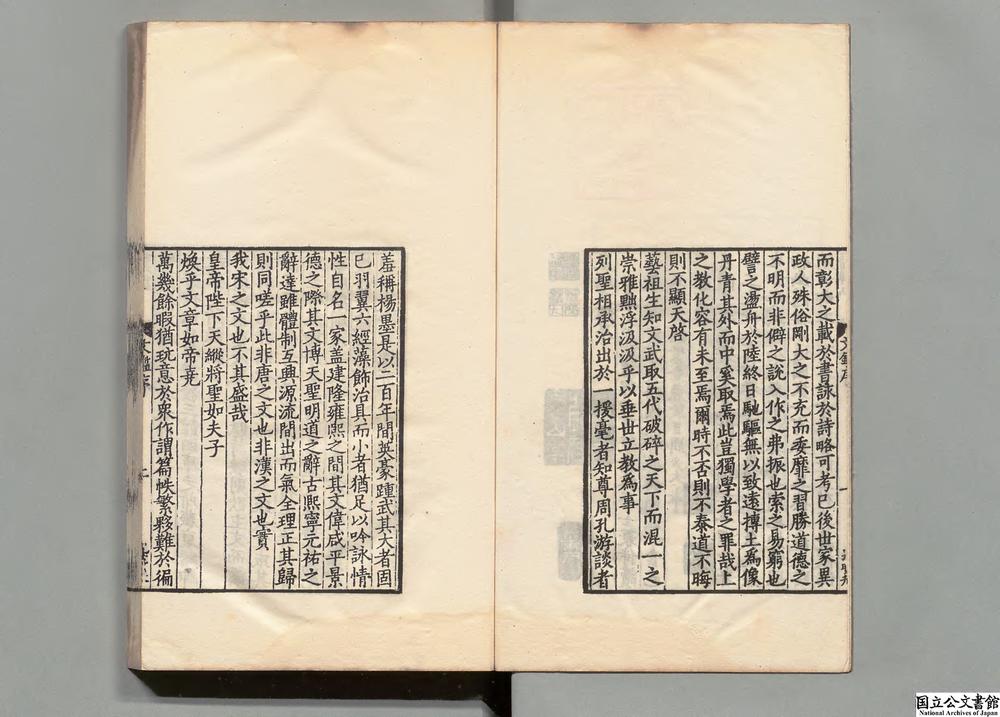 而彰大之載於書詠於詩略可考已後世家異
政人殊俗剛大之不充而委靡之習勝道德之
不明而非僻之說入作之弗振也索之易窮也
譬之盪舟於陸終日馳驅無以致遠摶土爲像
丹青其外而中奚取焉此豈獨學者之罪哉上
之教化容有未至焉爾時不否則不泰道不晦
則不顯天啓
藝祖生知文武取五代破碎之天下而混一之
崇雅黜浮汲汲乎以垂世立教爲事
列聖相承治出於一援毫者知尊周孔游談者
羞稱楊墨是以二百年間英豪踵武其大者固
已羽翼六經藻飾治具而小者猶足以吟詠情
性自名一家盖建隆雍熙之間其文偉咸平景
德之際其文博天聖明道之辭古熙寧元祐之
辭達雖體制互興源流間出而氣全理正其歸
則同嗟乎此非唐之文也非漢之文也實
我宋之文也不其盛哉
皇帝陛下天縱將聖如夫子
煥乎文章如帝堯
萬幾餘暇猶玩意於衆作謂篇帙繁夥難於徧
鑑序
国立公文書館
National Archives of Japan